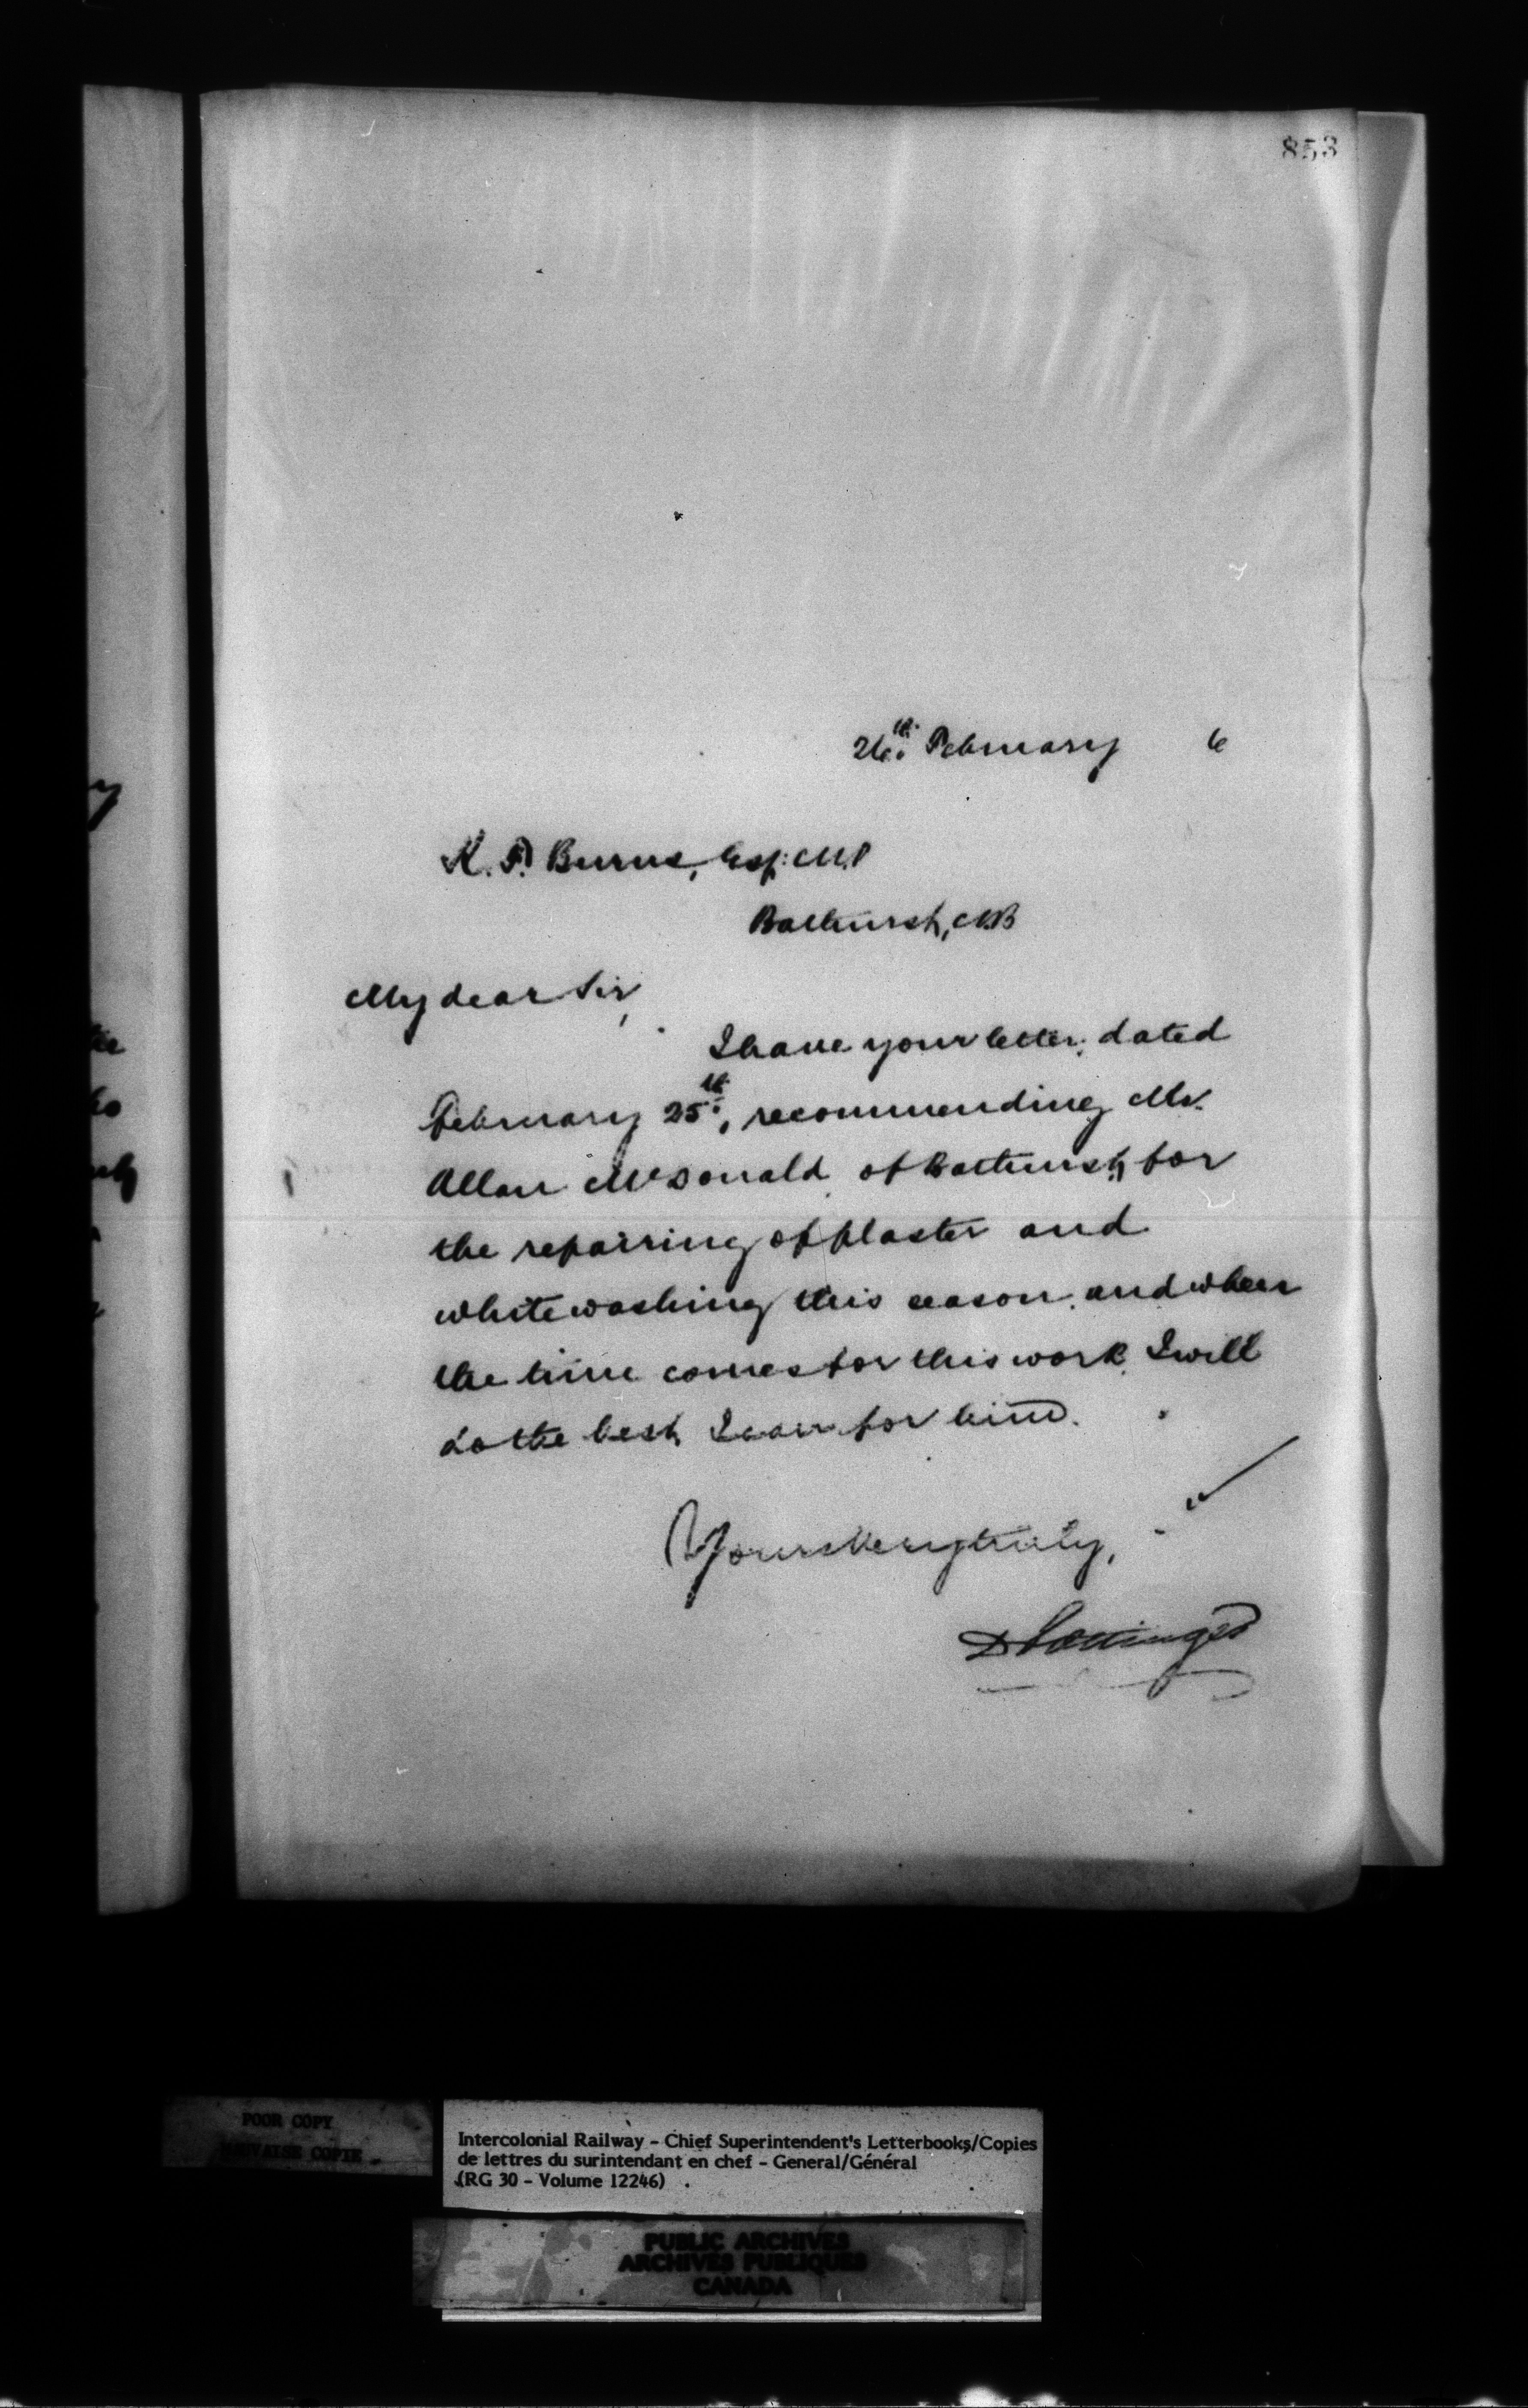 853
26th. February 6
K. F. Burns, Esq: M.P
Bathurst, N.B
My dear Sir,
I have your letter, dated
February 25th, recommending Mr.
Allan McDonald of Bathurst, for
the repairing of plaster and
whitewashing this season, and when
the time comes for this work, I will
do the best I can for him.
Yours Very truly,
D Pottinger
POOR COPY
MAUVAISE COPIE
Intercolonial Railway - Chief Superintendent's Letterbooks/Copies
de lettres du surintendant en chef - General/Général
(RG 30 - Volume 12246)
PUBLIC ARCHIVES
ARCHIVES PUBLIQUES
CANADA